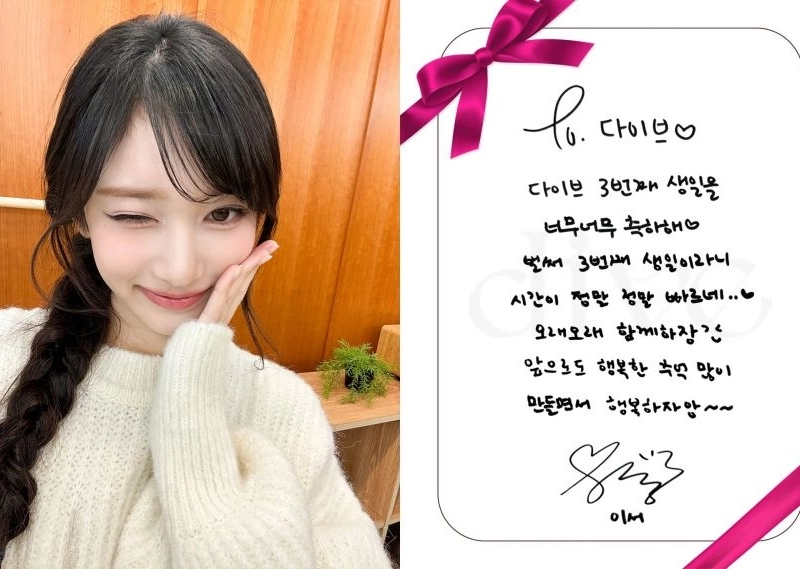 To. 다이브♡
다이브 3번째 생일을
너무너무 축하해♡
벌써 3번째 생일이라니
시간이 정말 정말 빠르네..♥
오래오래 함께하장 긴
앞으로도 행복한 추억 많이
만들면서 행복하자앙~~
이서
dive